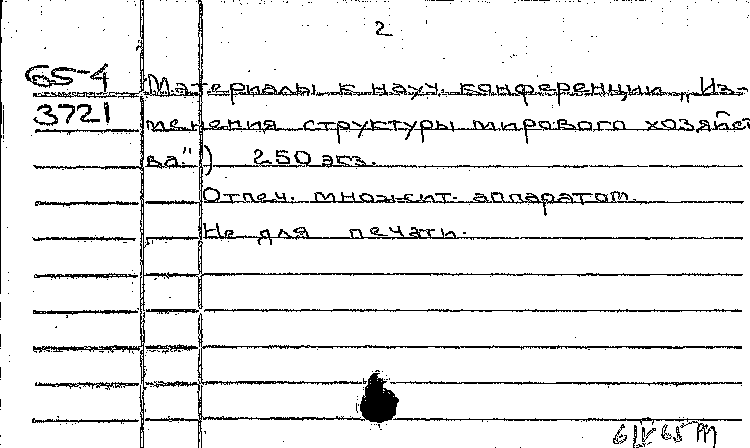 2
65-4 Материалы к науч. конференции „Из-
3721 менения структуры мирового хозяйст
ва.") 250 экз.
Отпеч. множит. аппаратом.
Не для печати.